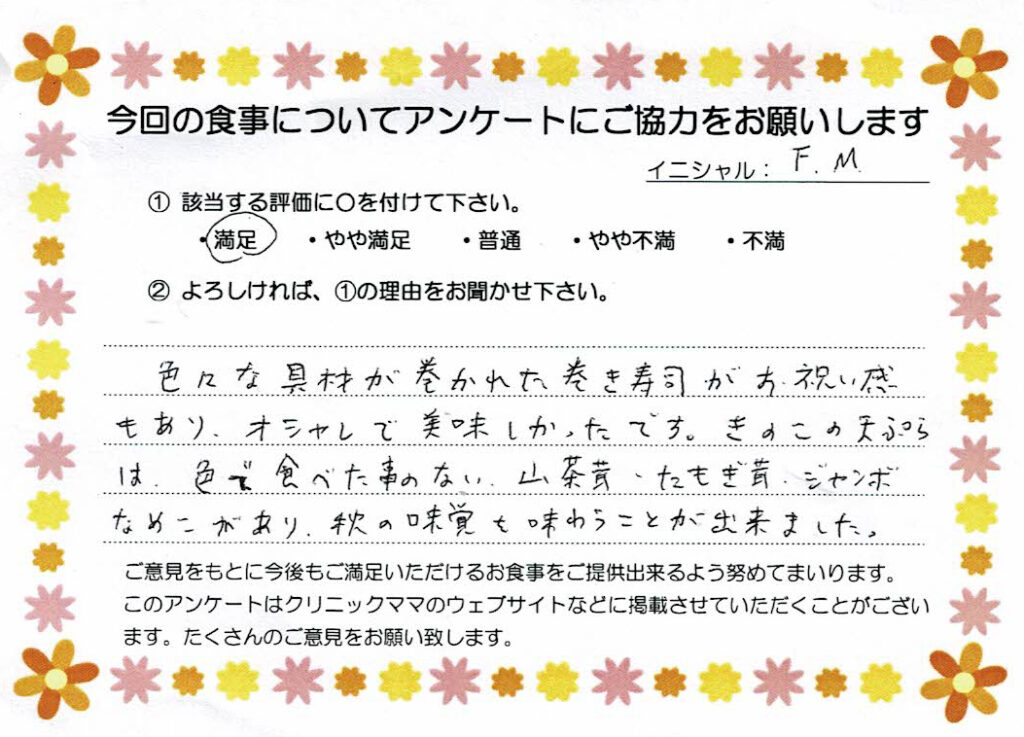 今回の食事についてアンケートにご協力をお願いします
イニシャル： F. M
① 該当する評価に〇を付けて下さい。
・満足 ・やや満足 ・普通 ・やや不満 ・不満
② よろしければ、①の理由をお聞かせ下さい。
色々な具材が巻かれた巻き寿司がお祝い感
もあり、オシャレで美味しかったです。きのこの天ぷら
は、食べた事のない、山茶茸・たもぎ茸・ジャンボ
なめこがあり、秋の味覚も味わうことが出来ました。
ご意見をもとに今後もご満足いただけるお食事をご提供出来るよう努めてまいります。
このアンケートはクリニックママのウェブサイトなどに掲載させていただくことがござい
ます。たくさんのご意見をお願い致します。